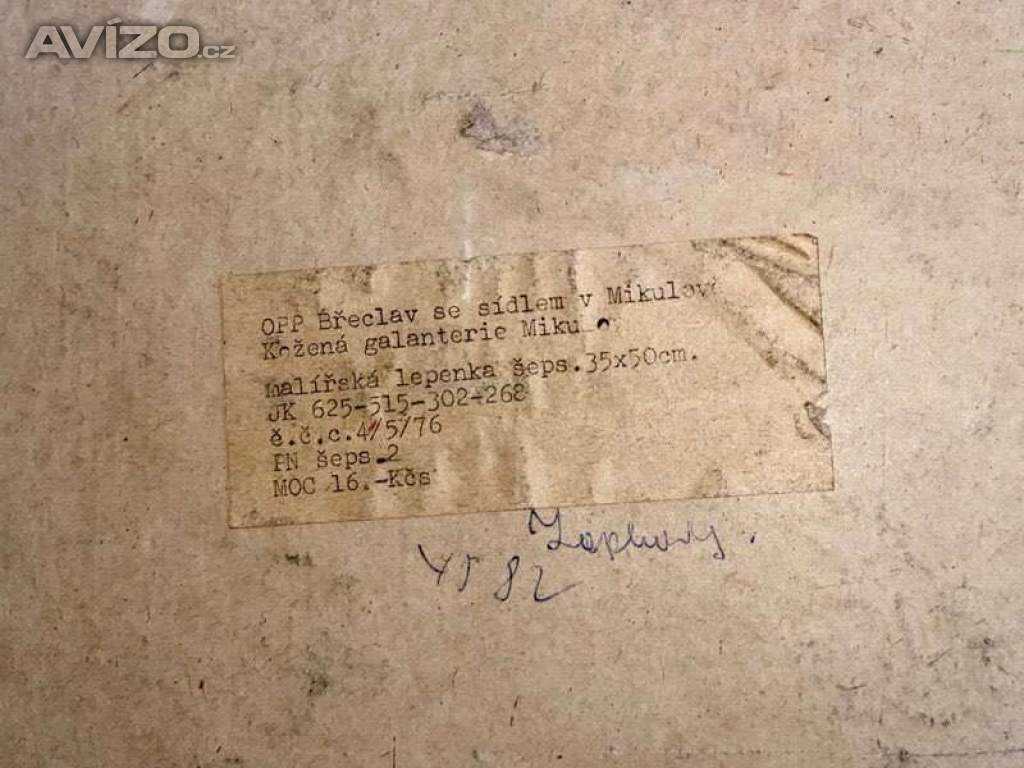 AVÍZO.cz
OPP Břeclav se sídlem v Mikulově
Kožená galanterie
malířská lepenka šeps.35x50cm.
JK 625-515-302-268
č.č.c.4/5/76
PN šeps.2
MOC 16.-Kčs
82